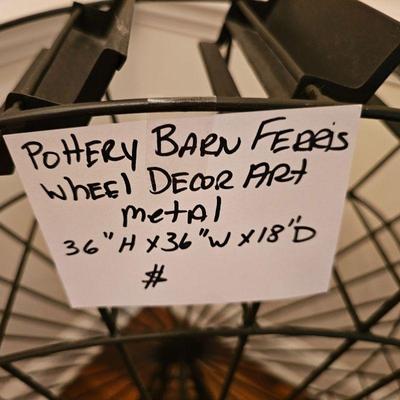 POTTERY BARN FERRIS
WHEEL DECOR ART
METAL
36"H X 36"W X 18"D
#